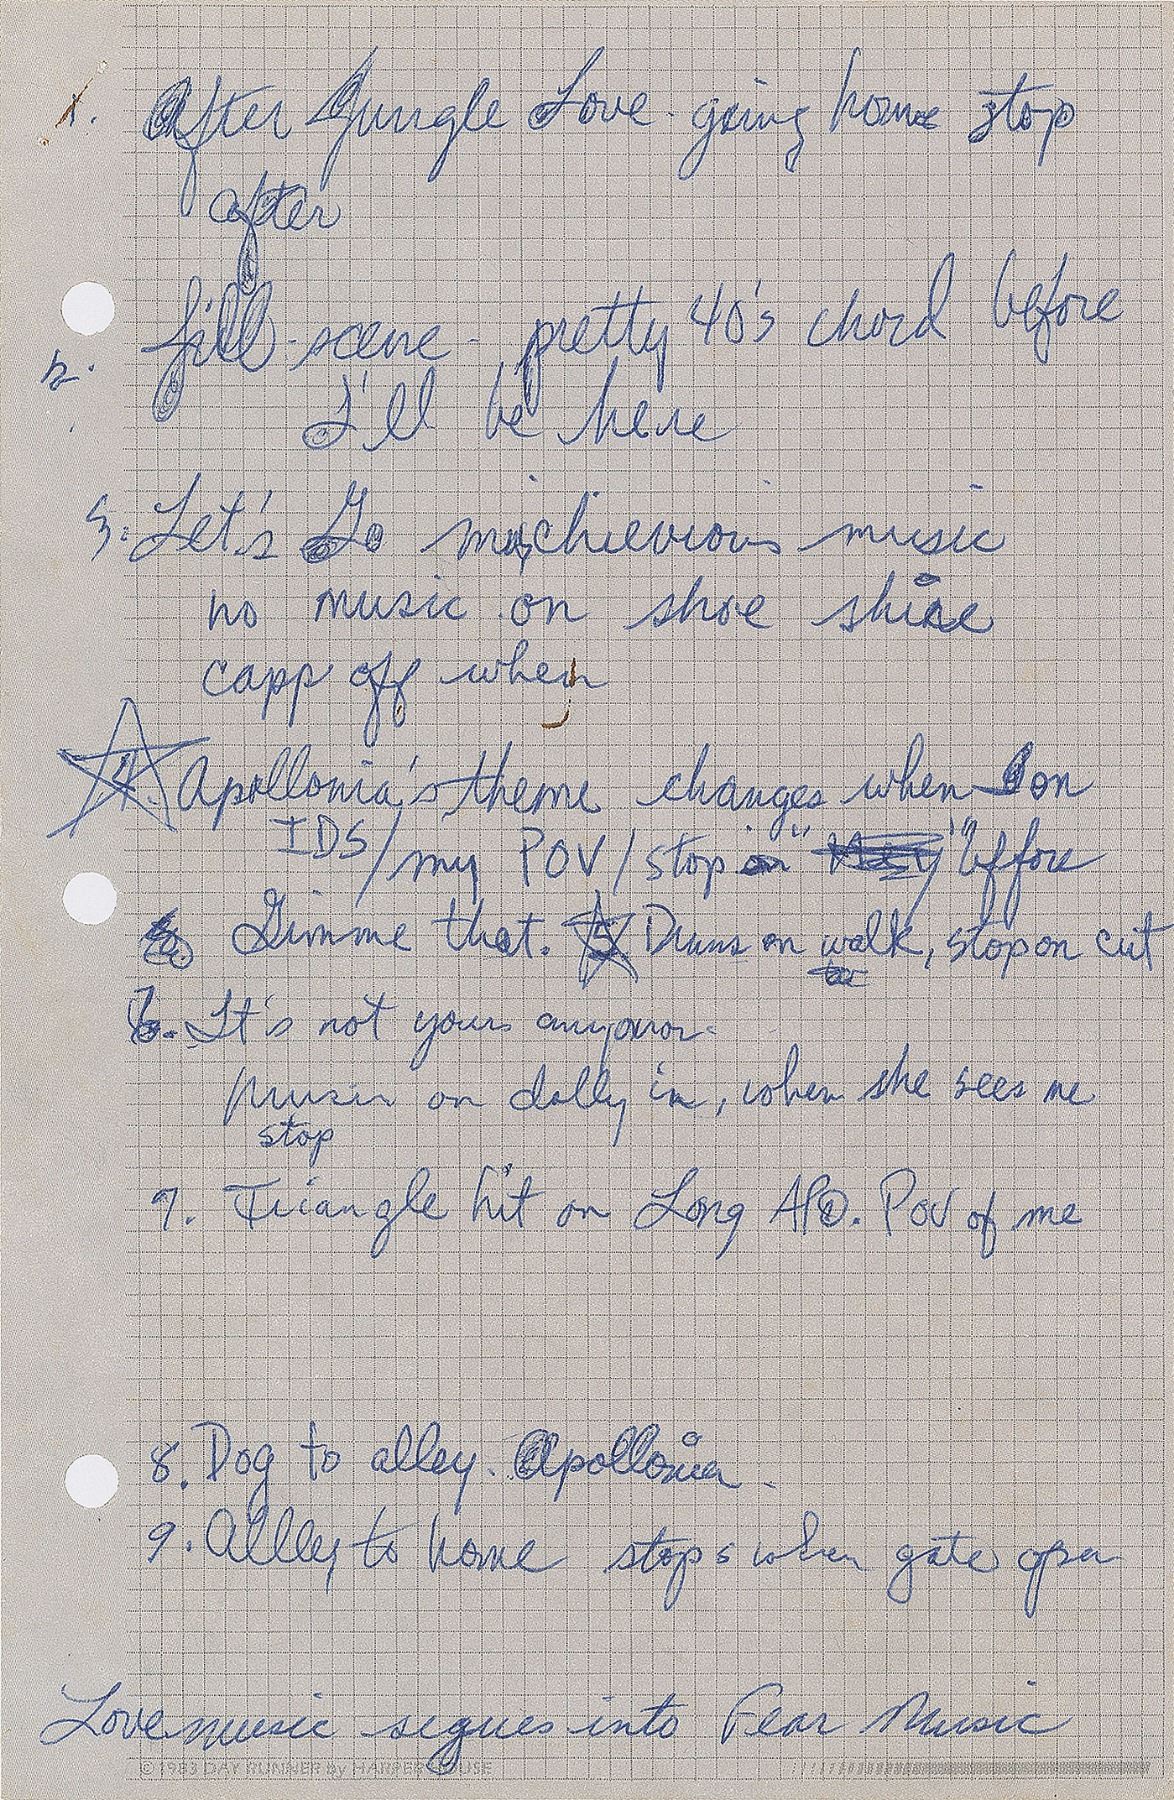 1. After Jungle Love - going home stop
after
2. Jill - scene - pretty 40's chord before
I'll be here
3. Let's Go mischievious music
no music on shoe shine
capp off when
4. Apollonia's theme changes when on
IDS/my POV/stop " " before
Gimme that. 5 Drums on walk, stop on cut
6. It's not yours anymor
music on dolly in, when she sees me
stop
7. Triangle hit on Long APO. POV of me
8. Dog to alley. Apollonia.
9. Allley to home stops when gate open
Love music segues into Fear Music
© 1983 DAY RUNNER by HARPER HOUSE